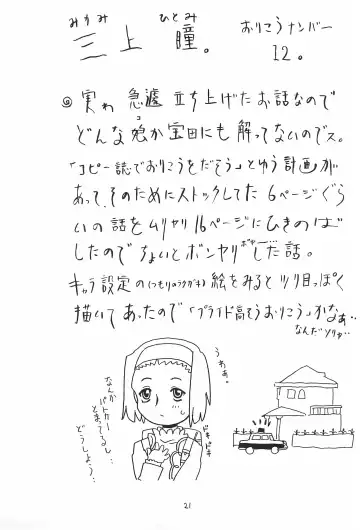 みかみ ひとみ
三上 瞳。
おりこうナンバー
12。
◎実わ 急遽 立ち上げたお話なので
どんな娘か宝田にも解ってないのでス。
コ
「コピー誌でおりこうをだそう」とゆう計画が
あって、そのためにストックしてた6ページぐら
いの話をムリヤリ16ページにひきのば
したので ちょいとボンヤリした話。
ボヤー…
キャラ設定の(つもりのラクガキ)絵をみるとツリ目っぽく
描いてあったので「プライド高そうおりこう」かなぁ…
なんだソリャ…
うわぁ。
なんか
パトカー
とまってるし…
どうしよう…
ドキドキ
21